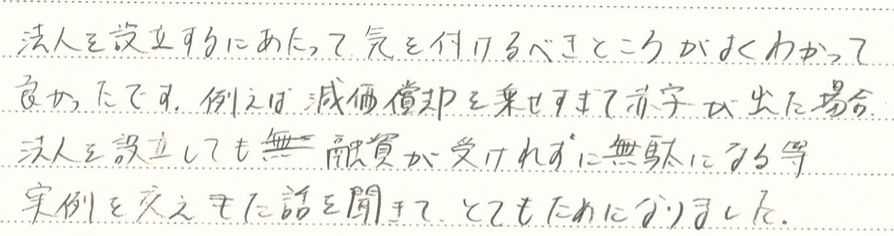 法人を設立するにあたって気を付けるべきところがよくわかって
良かったです。例えば減価償却を乗せすぎて赤字が出た場合、
法人を設立しても融資が受けれずに無駄になる等
実例を交えた話を聞きて、とてもためになりました。